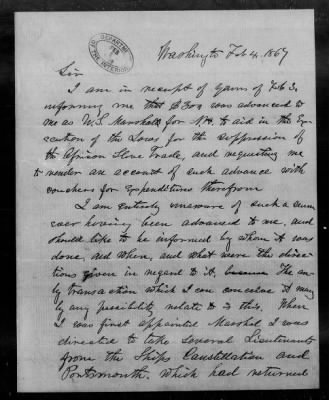 Washington Feb 4. 1867
DEPARTMENT
FEB
OF THE INTERIOR
Sir
I am in receipt of yours of Feb 3.
informing me that $ was advanced to
me as U.S. Marshal for to aid in the Exe-
cution of the Laws for the suppression of
the African Slave Trade, and requesting me
to render an account of such advance with
vouchers for Expenditures therefrom
I am entirely unaware of such a sum
ever having been advanced to me, and
should like to be informed by whom it was
done, and when, and what were the direc-
tions given in regard to it, The on-
ly transaction which I can conceive it may
by any possibility relate to is this. When
I was first appointed Marshal I was
directed to take several Lieutenants
from the Ships Constellation and
Portsmouth, which had returned